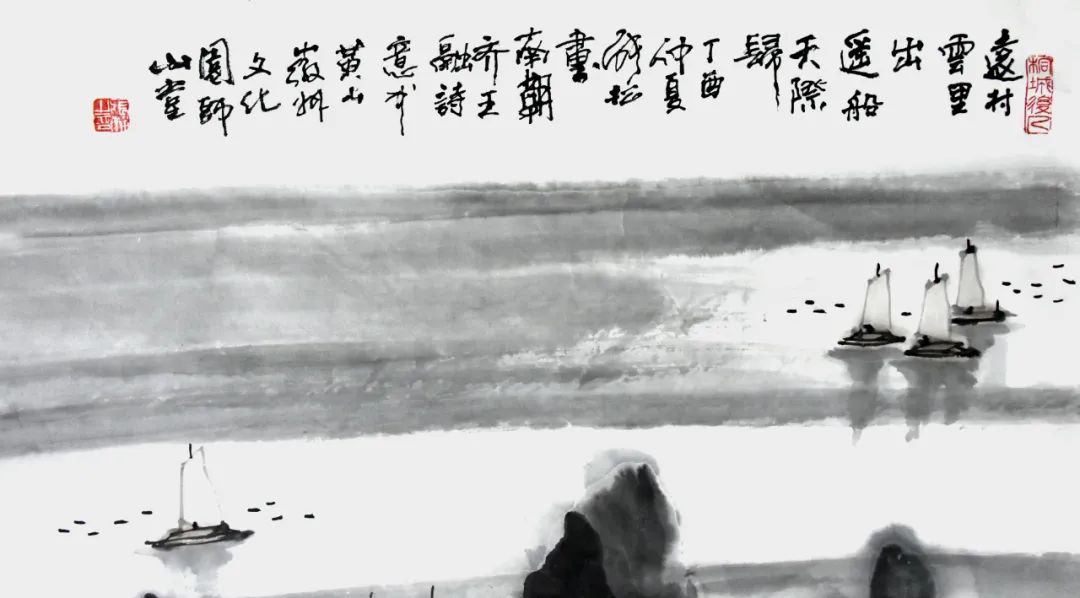 桐城後人
遠村
雲里
出
遥船
天際
歸
丁酉
仲夏
松
畫
南朝
齐王
融詩
意於
黄山
徽州
文化
園師
山堂